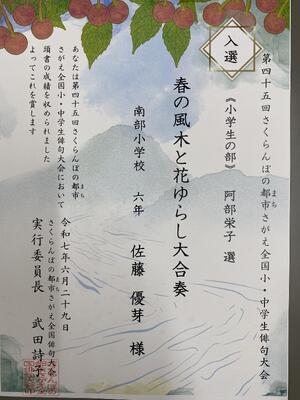 入選
第四十五回さくらんぼの都市さがえ全国小・中学生俳句大会
まち
《小学生の部》 阿部栄子 選
春の風木と花ゆらし大合奏
南部小学校 六年 佐藤 優芽 様
あなたは第四十五回さくらんぼの都市
まち
さがえ全国小・中学生俳句大会において
頭書の成績を収められました
よってこれを賞します
令和七年六月二十九日
さくらんぼの都市さがえ全国俳句大会
まち
実行委員長 武田詩子